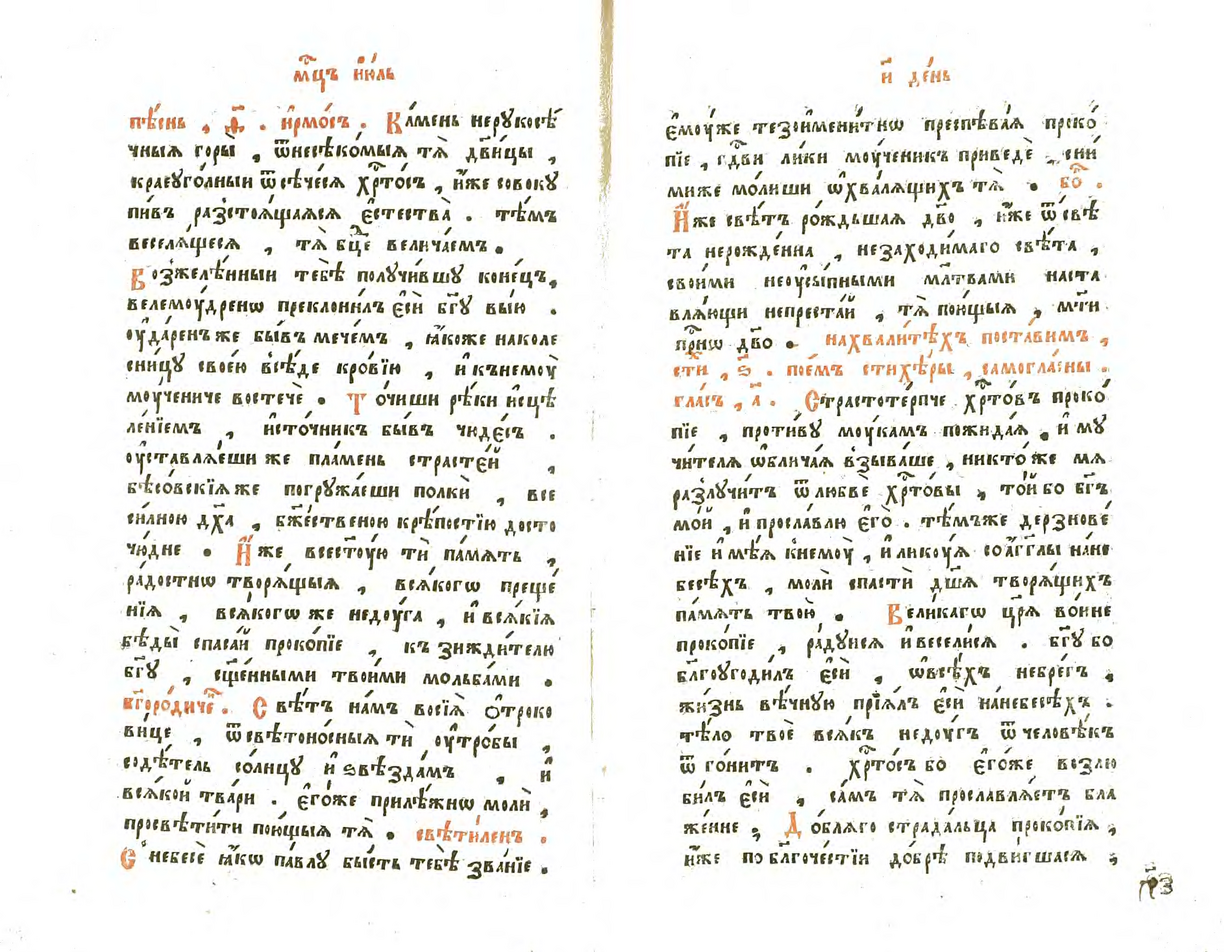 мⷭ҇цъ і҆ю́ль
пѣ́снь , ѳ҃ . і҆рмо́съ . Ка́мень нерꙋкосѣ́
чныѧ горы̀ , ѿнесѣко́мыѧ тѧ̀ дв҃ицы ,
краеꙋго́лныи ѿсѣ́чесѧ хрⷭ҇то́съ , и҆́же совокꙋ
пи́въ разстоѧ́щаѧсѧ є҆стества̀ . тѣ́мъ
веселѧ́щесѧ , тѧ̀ бцⷣе велича́емъ .
Возжелѣ́нныи тебѣ̀ полꙋчи́вшꙋ коне́цъ,
велемоу́дренѡ преклони́лъ є҆сѝ бг҃ꙋ вы́ю .
оу҆да́ренъже бы́въ мече́мъ , ꙗ҆́коже наколе
сни́цꙋ свое́ю всѣ́де кро́вїю , и҆ къ немоу̀
моу́чениче востечѐ . То́чиши рѣ́ки и҆сцѣ
ле́нїемъ , и҆сто́чникъ бы́въ чюде́съ .
оу҆ставлѧ́еши же пла́мень страсте́й ,
бѣсо́вскїѧже погрꙋжа́еши полкѝ , все
си́лною дх҃а , бжⷭ҇е́ственою крѣ́постїю досто
чю́дне . И҆́же всест҃ꙋ́ю тѝ па́мѧть ,
ра́достнѡ творѧ́щыѧ , всѧ́когѡ преще́
нїѧ , всѧ́когѡ же недоу́га , и҆ всѧ́кїѧ
бѣды̀ спаса́й проко́пїе , къ зижди́телю
бг҃ꙋ , сщ҃е́нными твои́ми мольба́ми .
бг҃оро́диченъ . Свѣ́тъ на́мъ восїѧ̀ ѻ҆троко
ви́це , ѿсвѣтоно́сныѧ тѝ оу҆тро́бы ,
содѣ́тель со́лнцꙋ и҆ ѕвѣзда́мъ , и҆
всѧ́кой тва́ри . є҆го́же прилѣ́жнѡ молѝ ,
просвѣти́ти пою́щыѧ тѧ̀ . свѣти́ленъ .
С небесѐ ꙗ҆́кѡ па́влꙋ бы́сть тебѣ̀ зва́нїе .
и҃ де́нь
є҆моу́же тезоимени́тнѡ преспѣва́ѧ проко́
пїе , сдв҃и ли́ки моу́ченикъ приведѐ , сни́
миже мо́лиши ѡ҆хва́лѧщихъ тѧ̀ . бо҃ .
И҆́же свѣ́тъ ро́ждьшаѧ дв҃о , и҆́же ѿсвѣ́
та нерожде́нна , незаходи́маго свѣ́та ,
свои́ми неоусы́пными мл҃твами наста
влѧ́ющи непреста́й , тѧ̀ пою́щыѧ , мт҃и
прⷭ҇нѡ дв҃о . нахвали́тѣхъ поста́вимъ ,
сти́хи , ѕ҃ . пое́мъ стихе́ры , самогла́сны .
гла́съ , а҃ . Страстоте́рпче хрⷭ҇то́въ проко́
пїе , проти́вꙋ моу́камъ пожида́ѧ , и҆ мꙋ
чи́телѧ ѡ҆блича́ѧ взыва́ше , никто́же мѧ
разлꙋчи́тъ ѿлюбвѐ хрⷭ҇то́вы , то́й бо бг҃ъ
мо́й , и҆ просла́влю є҆гѡ̀ . тѣ́мъже дерзнове́
нїе и҆мѣ́ѧ кнемоу̀ , и҆ лику́ѧ со а҆́гг҃лы нане
бесѣ́хъ , молѝ спастѝ дш҃а творѧ́щихъ
па́мѧть твою̀ . Вели́кагѡ цр҃ѧ во́ине
проко́пїе , ра́дꙋисѧ и҆ весели́сѧ . бг҃ꙋ бо
бл҃гоꙋгоди́лъ є҆сѝ , ѡ҆всѣ́хъ небре́гъ ,
жи́знь вѣ́чнꙋю прїѧ́лъ є҆сѝ нанебесѣ́хъ .
тѣ́ло твоѐ всѧ́къ недоу́гъ ѿ человѣ́къ
ѿго́нитъ . хрⷭ҇то́съ бо є҆го́же возлю
би́лъ є҆сѝ , са́мъ тѧ̀ прославлѧ́етъ бла
же́нне , До́блѧго страда́льца проко́пїѧ ,
и҆́же по бл҃гоче́стїи до́брѣ подви́гшасѧ ,